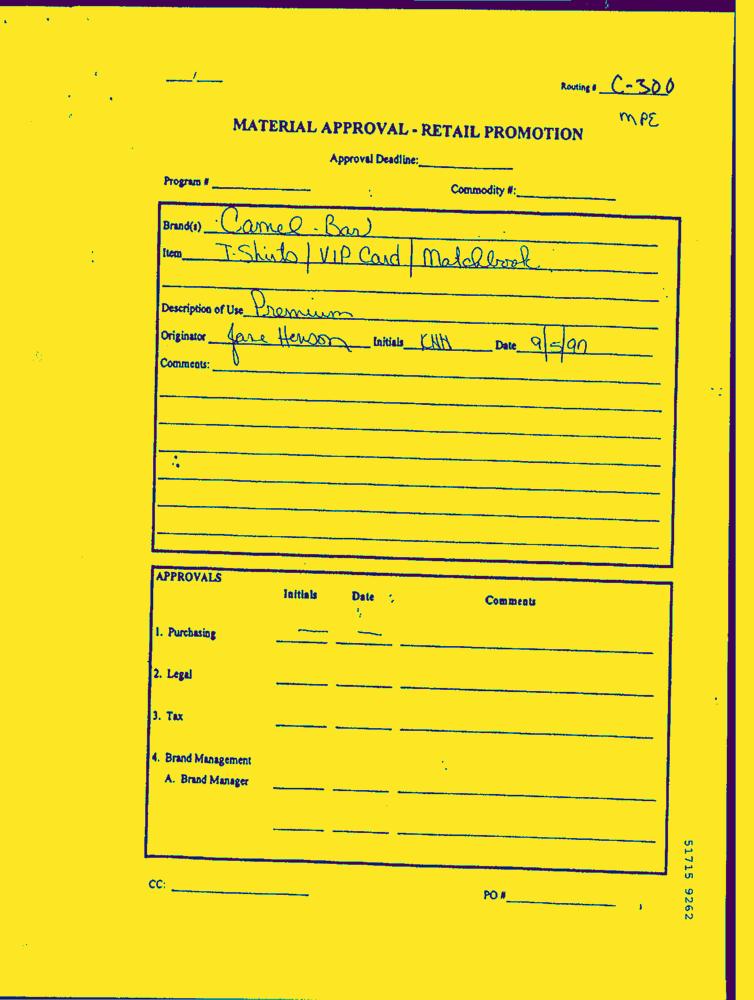 Routing # C-300
MPE
MATERIAL APPROVAL - RETAIL PROMOTION
Approval Deadline:
Program #
Commodity #:
Brand(s) Camel - Bar
Item T-Shirts | VIP Card | Matchbook
Description of Use Premium
Originator Jane Henson Initials Date 9/5/97
Comments:
APPROVALS
Initials Date Comments
1. Purchasing
2. Legal
3. Tax
4. Brand Management
A. Brand Manager
CC:
PO #
51715 9262